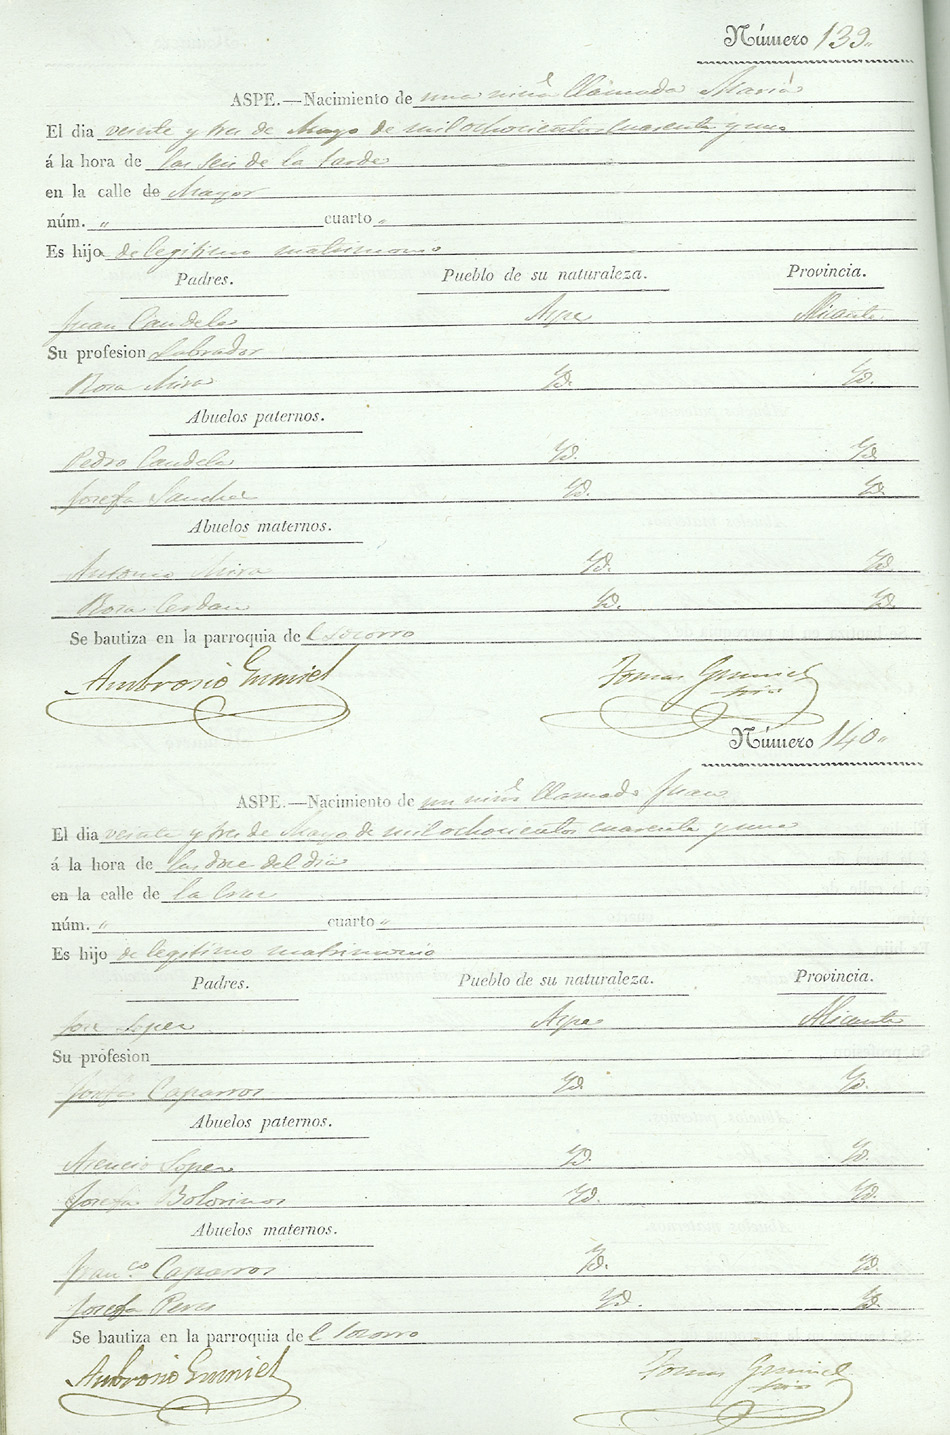 Número 139"
ASPE.—Nacimiento de una niña llamada Maria
El dia veinte y tres de Mayo de mil ochocientos cuarenta y uno
á la hora de las seis de la tarde
en la calle de Mayor
núm. " cuarto "
Es hija de legitimo matrimonio
Padres. Pueblo de su naturaleza. Provincia.
Juan Candela Aspe Alicante
Su profesion Labrador
Rosa Mira Yd. Yd.
Abuelos paternos.
Pedro Candela Yd. Yd.
Josefa Sanchez Yd. Yd.
Abuelos maternos.
Antonio Mira Yd. Yd.
Rosa Cerdan Yd. Yd.
Se bautiza en la parroquia de l Socorro
Ambrosio Tomas
Número 140"
ASPE.—Nacimiento de un niño llamado Juan
El dia veinte y tres de Mayo de mil ochocientos cuarenta y uno
á la hora de las doce del dia
en la calle de la Cruz
núm. " cuarto "
Es hijo de legitimo matrimonio
Padres. Pueblo de su naturaleza. Provincia.
Jose Lopez Aspe Alicante
Su profesion
Josefa Caparros Yd. Yd.
Abuelos paternos.
Asencio Lopez Yd. Yd.
Josefa Bolorinos Yd. Yd.
Abuelos maternos.
Franco. Caparros Yd. Yd.
Josefa Peres Yd. Yd.
Se bautiza en la parroquia de l Socorro
Ambrosio Tomas